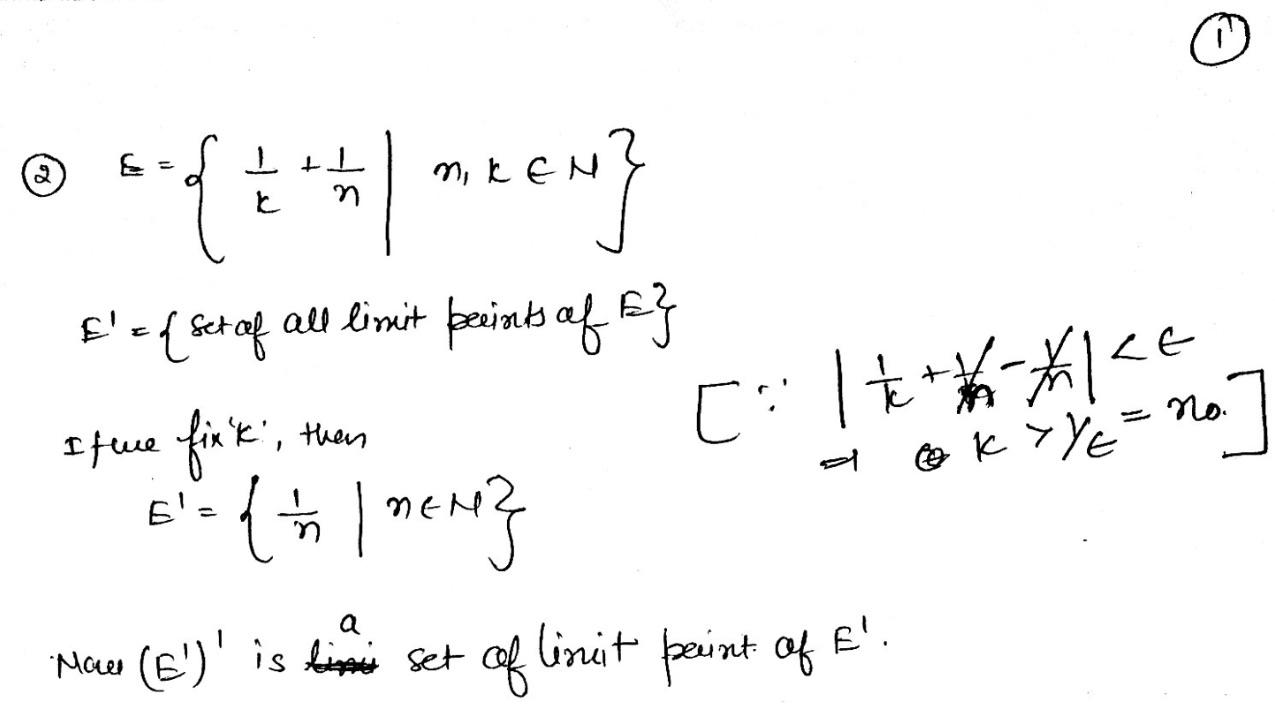 ①
② E = { 1/k + 1/n | n, k ∈ N }
E' = { Set of all limit points of E }
If we fix 'k', then
[ ∵ | 1/k + 1/n - 1/n | < ε
⇒ k > 1/ε = no. ]
E' = { 1/n | n ∈ N }
Now (E')' is a set of limit point of E'.